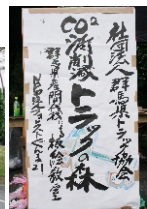 社団法人 群馬県トラック協会
CO2削減 トラックの森
群馬県産間伐材による板絵教室